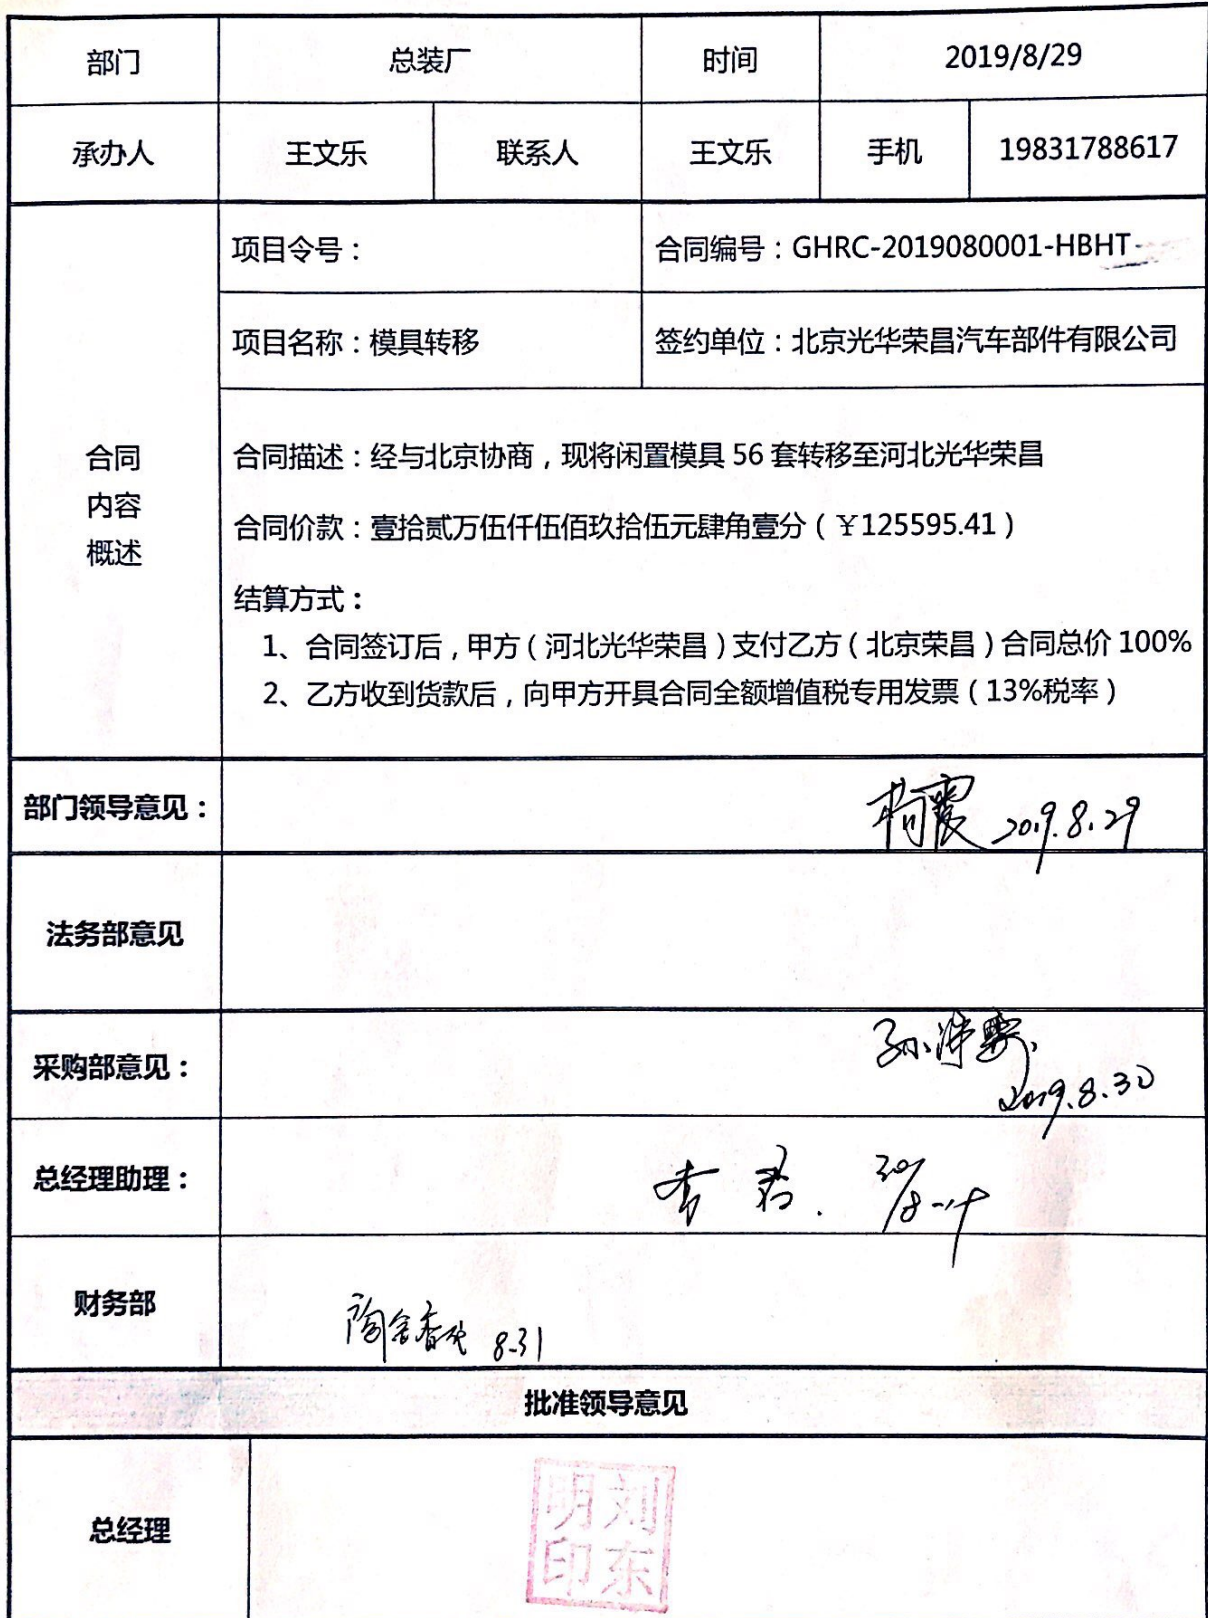 部门 总装厂 时间 2019/8/29
承办人 王文乐 联系人 王文乐 手机 19831788617
项目令号： 合同编号：GHRC-2019080001-HBHT-
项目名称：模具转移 签约单位：北京光华荣昌汽车部件有限公司
合同
内容
概述
合同描述：经与北京协商，现将闲置模具 56 套转移至河北光华荣昌
合同价款：壹拾贰万伍仟伍佰玖拾伍元肆角壹分（￥125595.41）
结算方式：
1、合同签订后，甲方（河北光华荣昌）支付乙方（北京荣昌）合同总价 100%
2、乙方收到货款后，向甲方开具合同全额增值税专用发票（13%税率）
部门领导意见： 2019.8.29
法务部意见
采购部意见： 2019.8.30
总经理助理：
财务部 8.31
批准领导意见
总经理
刘东
明印